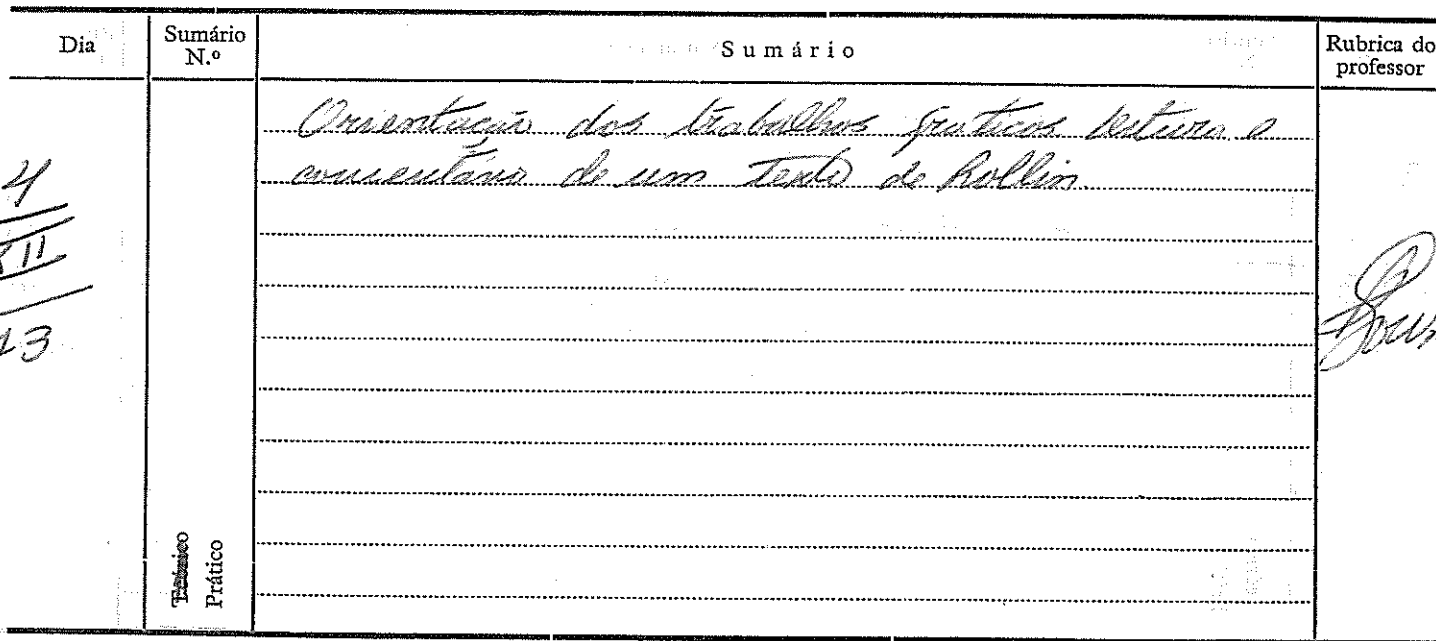 Dia
Sumário N.º
Sumário
Rubrica do professor
Orientação dos trabalhos praticos leitura e
comentário de um texto de Rollin.
4
XII
Teórico
Prático